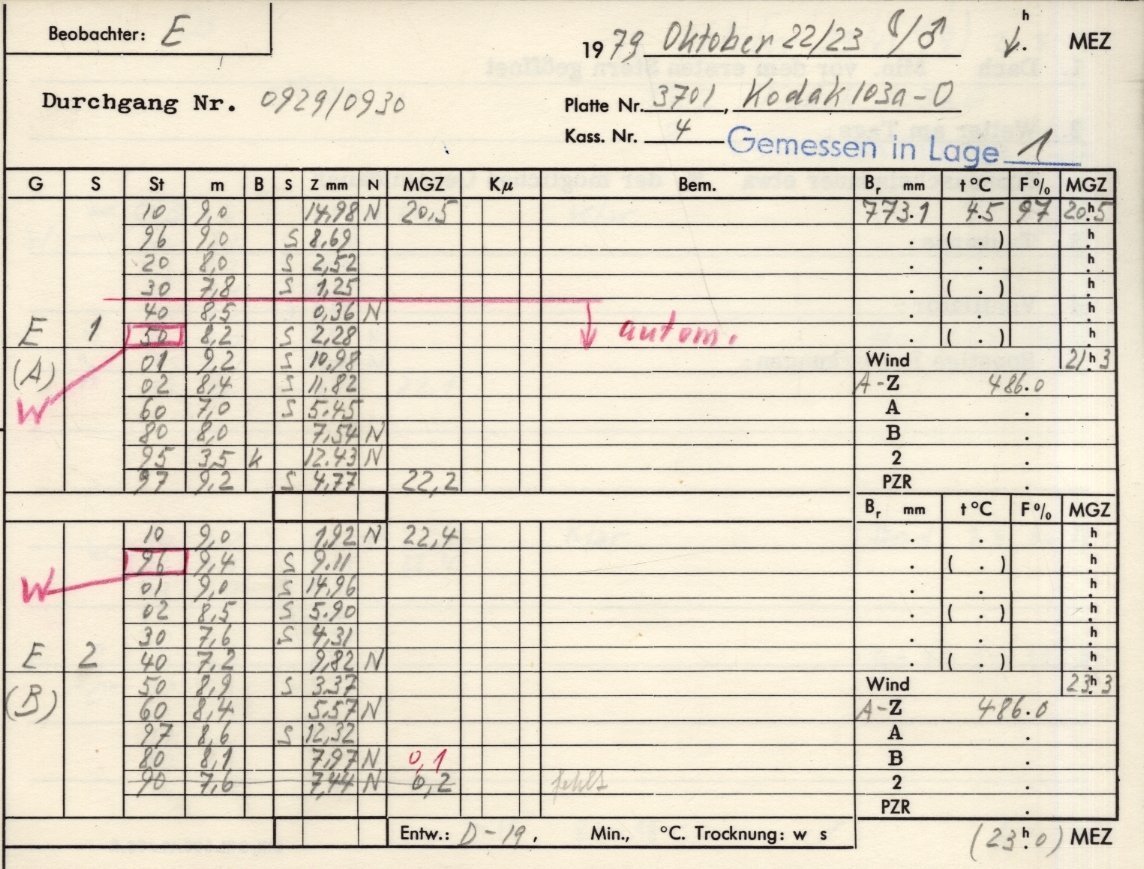 Beobachter: E
1979 Oktober 22/23 ☾/♂ h . MEZ
Durchgang Nr. 0929/0930
Platte Nr. 3701, Kodak 103a-O
Kass. Nr. 4 Gemessen in Lage 1
G S St m B S Z mm N MGZ Kμ Bem. Br mm t°C F% MGZ
10 9,0 14,98 N 20,5 773.1 4.5 97 20h5
96 9,0 S 8,69 . ( . ) h
20 8,0 S 2,52 . . h
30 7,8 S 1,25 . ( . ) h
40 8,5 0,36 N . . h
E 1 50 8,2 S 2,28 autom. . ( . ) h
01 9,2 S 10,98 Wind 21h3
(A) 02 8,4 S 11.82 A-Z 486.0
W 60 7,0 S 5.45 A .
80 8,0 7,54 N B .
95 3,5 k 12.43 N 2 .
97 9,2 S 4,77 22,2 PZR .
Br mm t°C F% MGZ
10 9,0 1,92 N 22,4 . . h
96 9,4 S 9.11 . ( . ) h
W 01 9,0 S 14,96 . . h
02 8,5 S 5.90 . ( . ) h
30 7,6 S 4,31 . . h
E 2 40 7,2 9,82 N . ( . ) h
50 8,9 S 3.37 Wind 23h3
(B) 60 8,4 5.57 N A-Z 486.0
97 8,6 S 12,32 A .
80 8,1 7,97 N 0,1 B .
90 7,6 7,44 N 0,2 fehlt 2 .
PZR .
Entw.: D-19, Min., °C. Trocknung: w s (23h0) MEZ